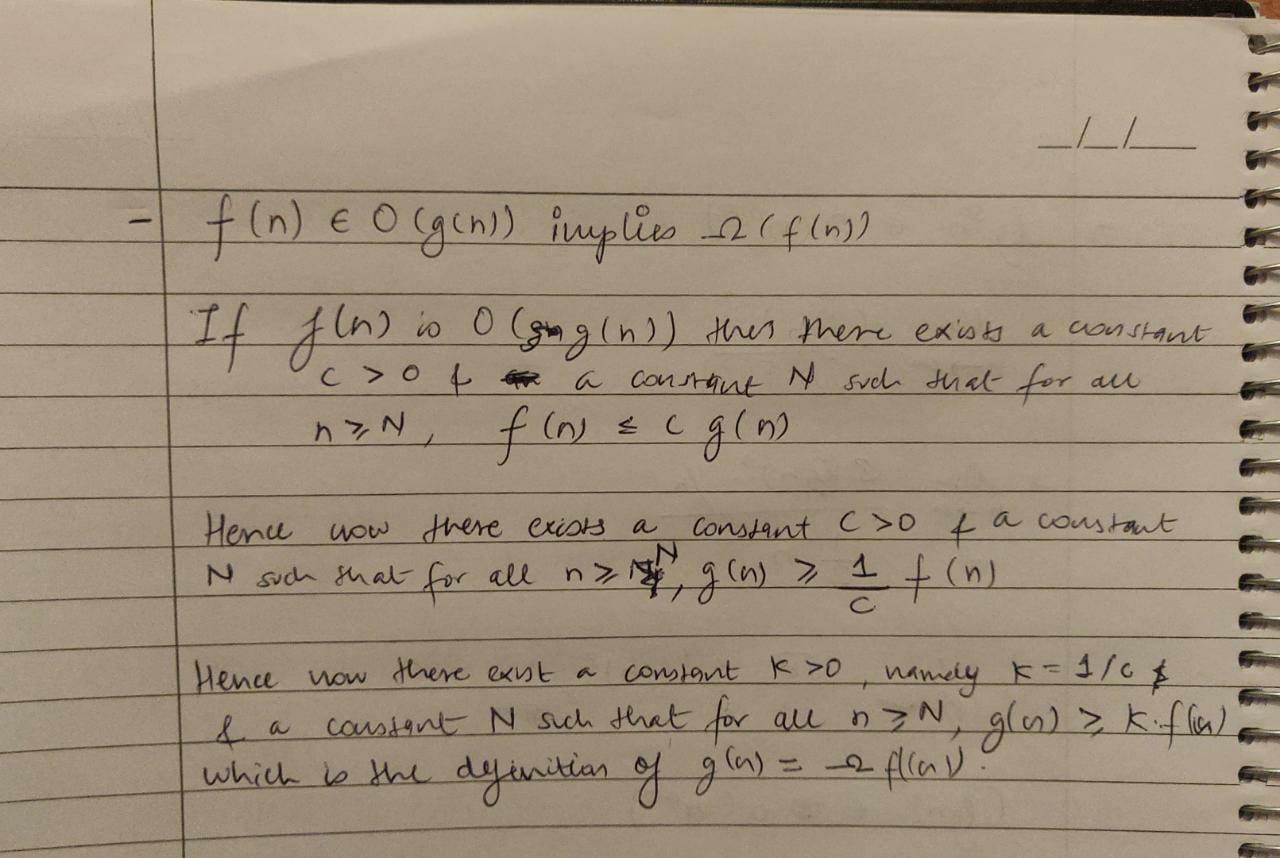 _/_/__
- f(n) ∈ O(g(n)) implies Ω(f(n))
If f(n) is O(g(n)) then there exists a constant
c > 0 & a constant N such that for all
n ≥ N, f(n) ≤ c g(n)
Hence now there exists a constant c > 0 & a constant
N such that for all n ≥ N, g(n) ≥ 1/c f(n)
Hence now there exist a constant k > 0, namely k = 1/c &
& a constant N such that for all n ≥ N, g(n) ≥ k.f(n)
which is the definition of g(n) = Ω f(n).